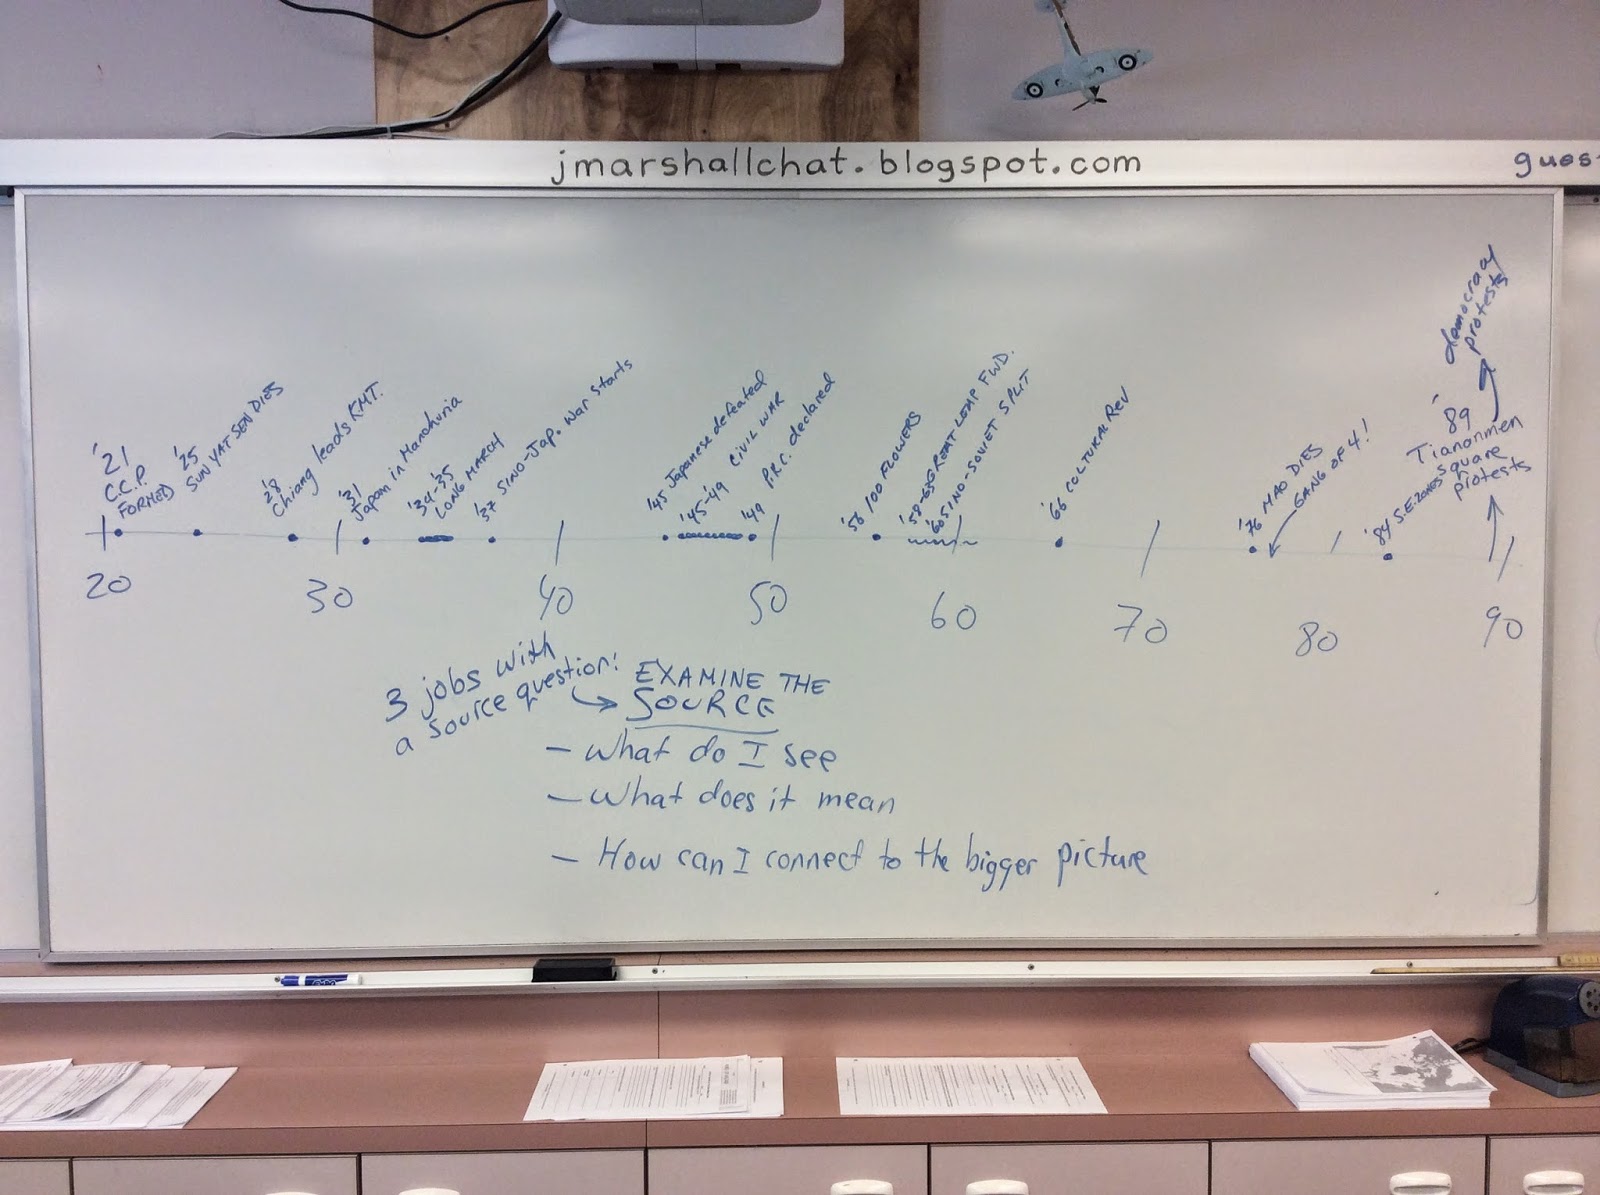 jmarshallchat.blogspot.com
gues
'21
C.C.P.
FORMED
'25
SUN YAT SEN DIES
'28
Chiang leads KMT.
'31
Japan in Manchuria
'34-'35
LONG MARCH
'37 SINO-JAP. War starts
'45 Japanese defeated
'45-'49 CIVIL WAR
'49 P.R.C. declared
'56 100 FLOWERS
'58-63 GREAT LEAP FWD.
'60 SINO-SOVIET SPLIT
'66 CULTURAL REV
'76 MAO DIES
GANG OF 4!
'84 S.E. ZONES
'89
Tiananmen
Square
protests
democracy
protests
20
30
40
50
60
70
80
90
3 jobs with
a source question:
EXAMINE THE
SOURCE
- What do I see
- What does it mean
- How can I connect to the bigger picture